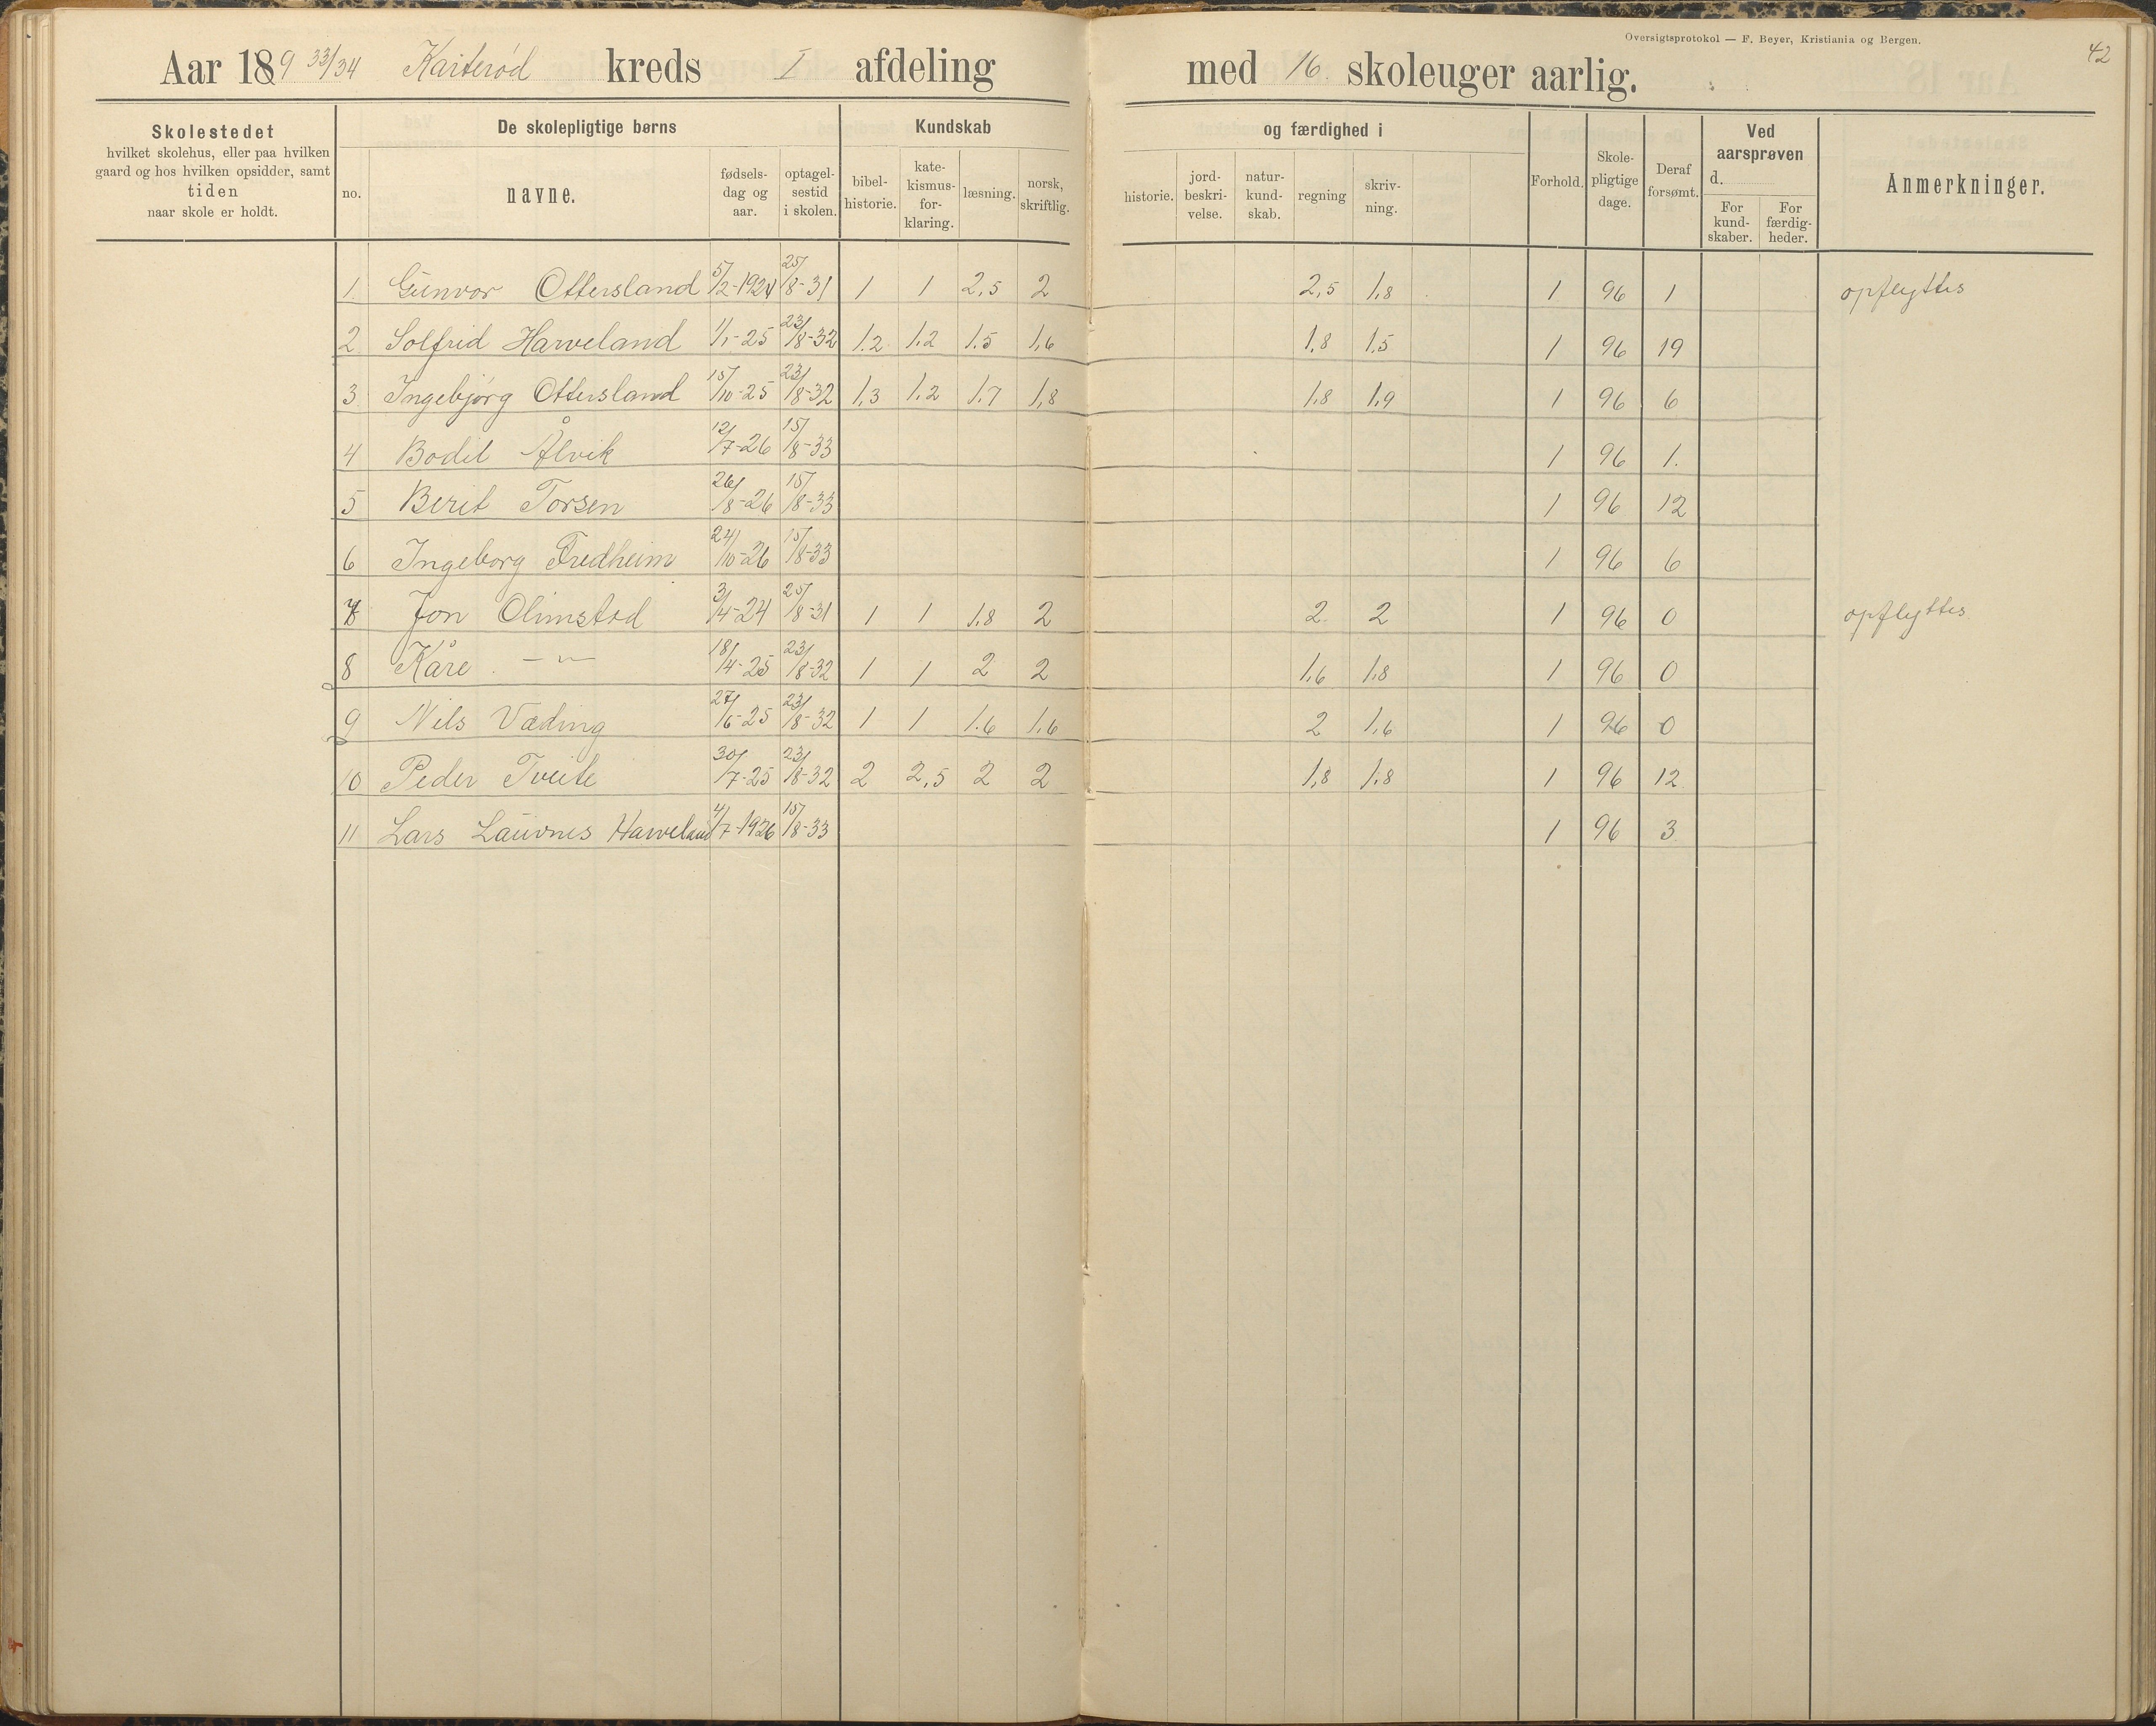 Oversigtsprotokol — F. Beyer, Kristiania og Bergen.
42
Aar 189 33/34 Karterød kreds I afdeling med 16 skoleuger aarlig.
Skolestedet
hvilket skolehus, eller paa hvilken
gaard og hos hvilken opsidder, samt
tiden
naar skole er holdt.
De skolepligtige børns
no.
navne.
fødsels-
dag og
aar.
optagel-
sestid
i skolen.
Kundskab
bibel-
historie.
kate-
kismus-
for-
klaring.
læsning.
norsk,
skriftlig.
og færdighed i
historie.
jord-
beskri-
velse.
natur-
kund-
skab.
regning
skriv-
ning.
Forhold.
Skole-
pligtige
dage.
Deraf
forsømt.
Ved
aarsprøven
d.
For
kund-
skaber.
For
færdig-
heder.
Anmerkninger.
1. Gunvor Ottersland 5/2-1924 25/8-31 1 1 2,5 2 2,5 1,8 1 96 1 opflyttes
2 Solfrid Harveland 1/1-25 23/8-32 1.2 1.2 1.5 1,6 1,8 1,5 1 96 19
3 Ingebjørg Ottersland 15/10-25 23/8-32 1,3 1,2 1,7 1,8 1,8 1,9 1 96 6
4 Bodil Ålvik 12/7-26 15/8-33 1 96 1.
5 Berit Torsen 26/8-26 15/8-33 1 96 12
6 Ingeborg Fredheim 24/10-26 15/8-33 1 96 6
7 Jon Olimstad 3/4-24 25/8-31 1 1 1,8 2 2 2 1 96 0 opflyttes
8 Kåre -"- 18/4-25 23/8-32 1 1 2 2 1,6 1,8 1 96 0
9 Nils Væding 27/6-25 23/8-32 1 1 1.6 1,6 2 1,6 1 96 0
10 Peder Tveite 30/7-25 23/8-32 2 2,5 2 2 1,8 1,8 1 96 12
11 Lars Lauvnes Harveland 4/7-1926 15/8-33 1 96 3